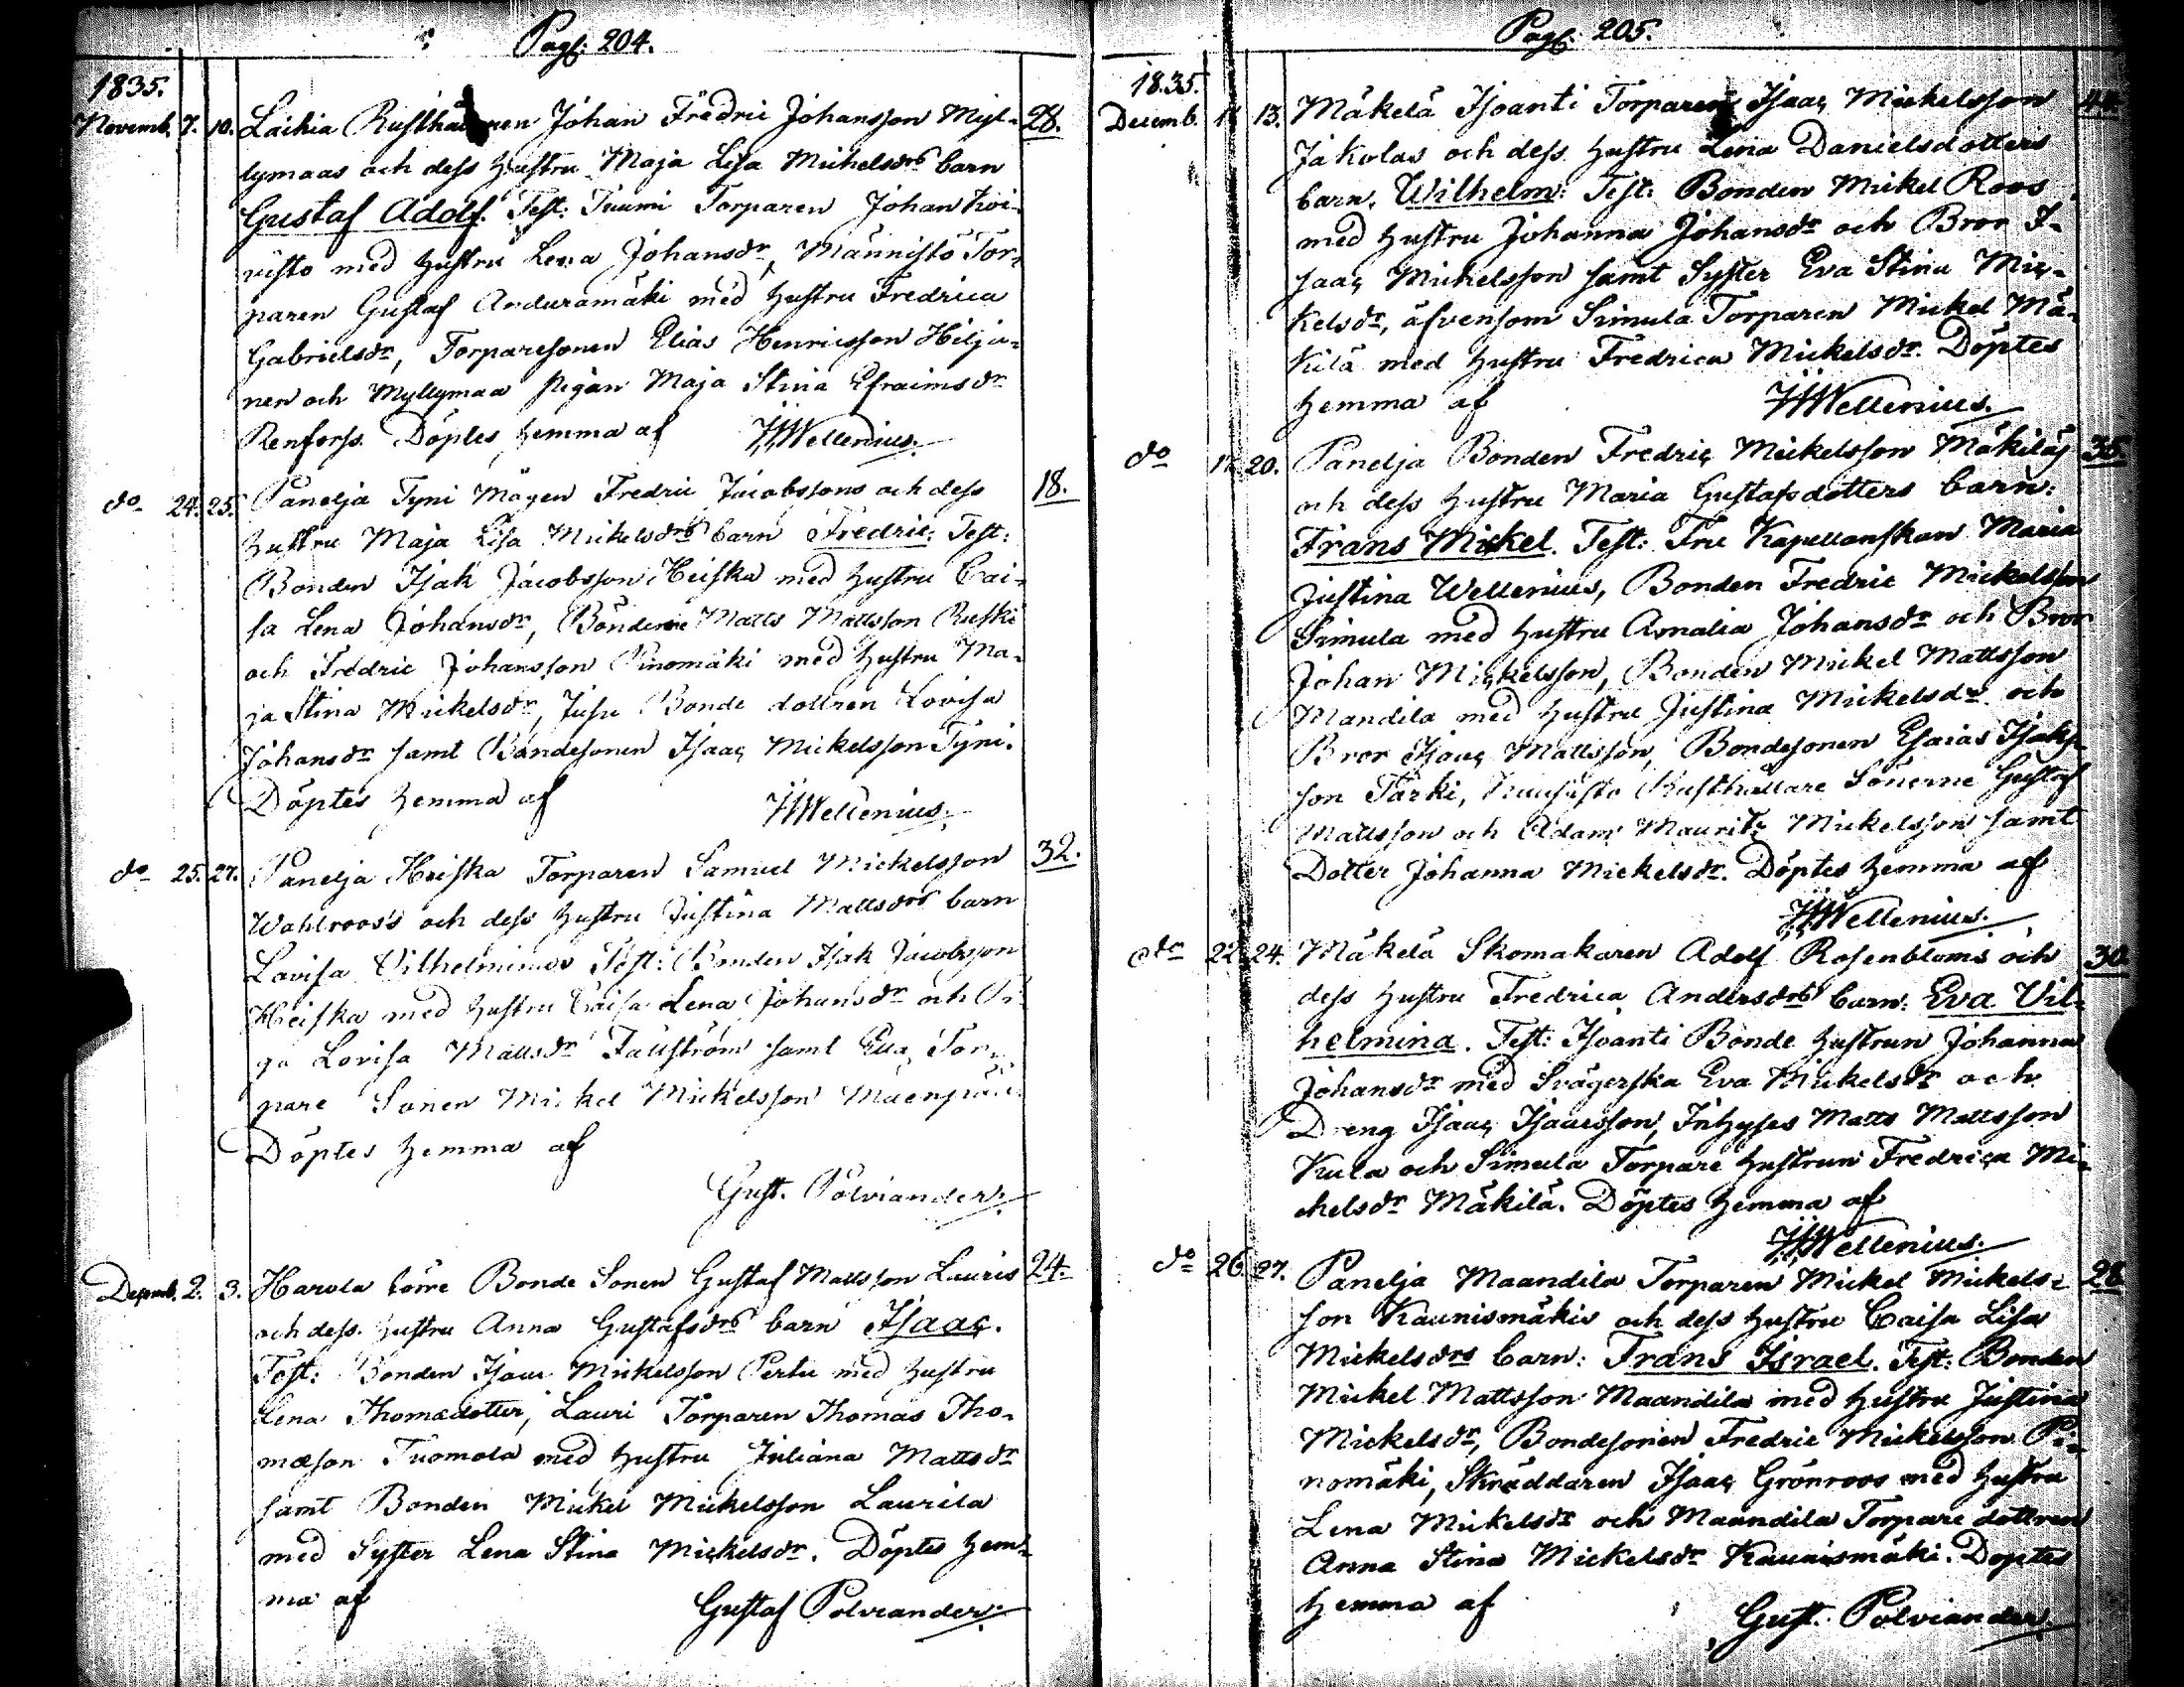 Pag: 204.
1835.
Novemb. 7. 10. Laihia Rusthållaren Johan Fredric Johansson Myl- 28.
lymaas och dess hustru Maja Lisa Michelsdrs barn
Gustaf Adolf. Test: Tuumi Torparen Johan Koi-
visto med hustru Lena Johansdr, Männistö Tor-
paren Gustaf Anduramäki med hustru Fredrica
Gabrielsdr, Torparesonen Elias Henricsson Hilja-
nen och Myllymaa pigan Maja Stina Efraimsdr
Renforss. Döptes hemma af HHWellenius.
do 24. 25. Panelja Tyni Mågen Fredric Jacobssons och dess 18.
hustru Maja Lisa Mickelsdrs barn Fredric: Test:
Bonden Isak Jacobsson Heiska med hustru Cai-
sa Lena Johansdr, Bönderne Matts Mattsson Ruski
och Fredric Johansson Pinomäki med hustru Ma-
ja Stina Mickelsdr, Juse Bonde dottren Lovisa
Johansdr samt Bondesonen Isaac Mickelsson Tyni.
Döptes hemma af HHWellenius.
do 25. 27. Panelja Heiska Torparen Samuel Mickelsson 32.
Wahlroos's och dess hustru Justina Mattsdrs barn
Lovisa Vilhelmina Test: Bonden Isak Jacobsson
Heiska med hustru Caisa Lena Johansdr och Pi-
ga Lovisa Mattsdr Fauström samt Eua Tor-
pare Sonen Mickel Mickelsson Mäenpää.
Döptes hemma af
Gust. Polviander.
Decemb. 2. 3. Harola Bonde Sonen Gustaf Mattsson Lauris 24.
och dess hustru Anna Gustafsdrs barn Isaac.
Test: Bonden Isaac Mickelsson Pertu med hustru
Lena Thomædotter, Lauri Torparen Thomas Tho-
mæson Tuomola med hustru Juliana Mattsdr
samt Bonden Mickel Mickelsson Laurila
med Syster Lena Stina Mickelsdr. Döptes hem-
ma af Gustaf Polviander.
Pag: 205.
1835.
Decemb. 11 13. Mäkelä Isoanti Torparen Isaac Mickelsson 44.
Jakolas och dess hustru Lena Danielsdotters
barn. Wilhelm: Test: Bonden Mickel Roos
med hustru Johanna Johansdr och Bror I-
saac Mickelsson samt Syster Eva Stina Mic-
kelsdr, äfvensom Simula Torparen Mickel Mä-
kilä med hustru Fredrica Mickelsdr. Döptes
hemma af HHWellenius.
do 17. 20. Panelja Bonden Fredric Mickelsson Mäkiläs 35.
och dess hustru Maria Gustafsdotters barn:
Frans Mickel. Test: Fru Kapellanskan Maria
Justina Wellenius, Bonden Fredric Mickelsson
Simula med hustru Amalia Johansdr och Bror
Johan Mickelsson, Bonden Mickel Mattsson
Mandila med hustru Justina Mickelsdr och
Bror Isaac Mattsson, Bondesonen Esaias Isaks-
son Tarki, Rusthållare Sönerne Gustaf
Mattsson och Adam Mauritz Mickelsson samt
Dotter Johanna Mickelsdr. Döptes hemma af
HHWellenius.
do 22 24. Mäkelä Skomakaren Adolf Rosenbloms och 30.
dess hustru Fredrica Andersdrs barn: Eva Vil-
helmina. Test: Isoanti Bonde hustrun Johanna
Johansdr med Svägerska Eva Mickelsdr och
Dreng Isaac Isaacsson, Inhyses Matts Mattsson
Kula och Simula Torpare hustrun Fredrica Mi-
chelsdr Mäkilä. Döptes hemma af
HHWellenius.
do 26. 27. Panelja Maandila Torparen Mickel Mickels- 28
son Kaunismäkis och dess hustru Caisa Lisa
Mickelsdrs barn: Frans Israel. Test: Bonden
Mickel Mattsson Maandila med hustru Justina
Mickelsdr, Bondesonen Fredric Mickelsson Pi-
nomäki, Skräddaren Isaac Grönroos med hustru
Lena Mickelsdr och Maandila Torpare dottren
Anna Stina Mickelsdr Kaunismäki. Döptes
hemma af Gust. Polviander